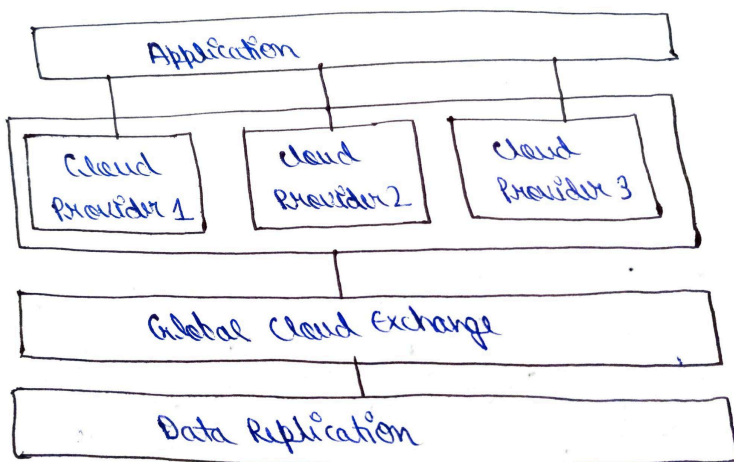 Application
Cloud Provider 1
Cloud Provider 2
Cloud Provider 3
Global Cloud Exchange
Data Replication